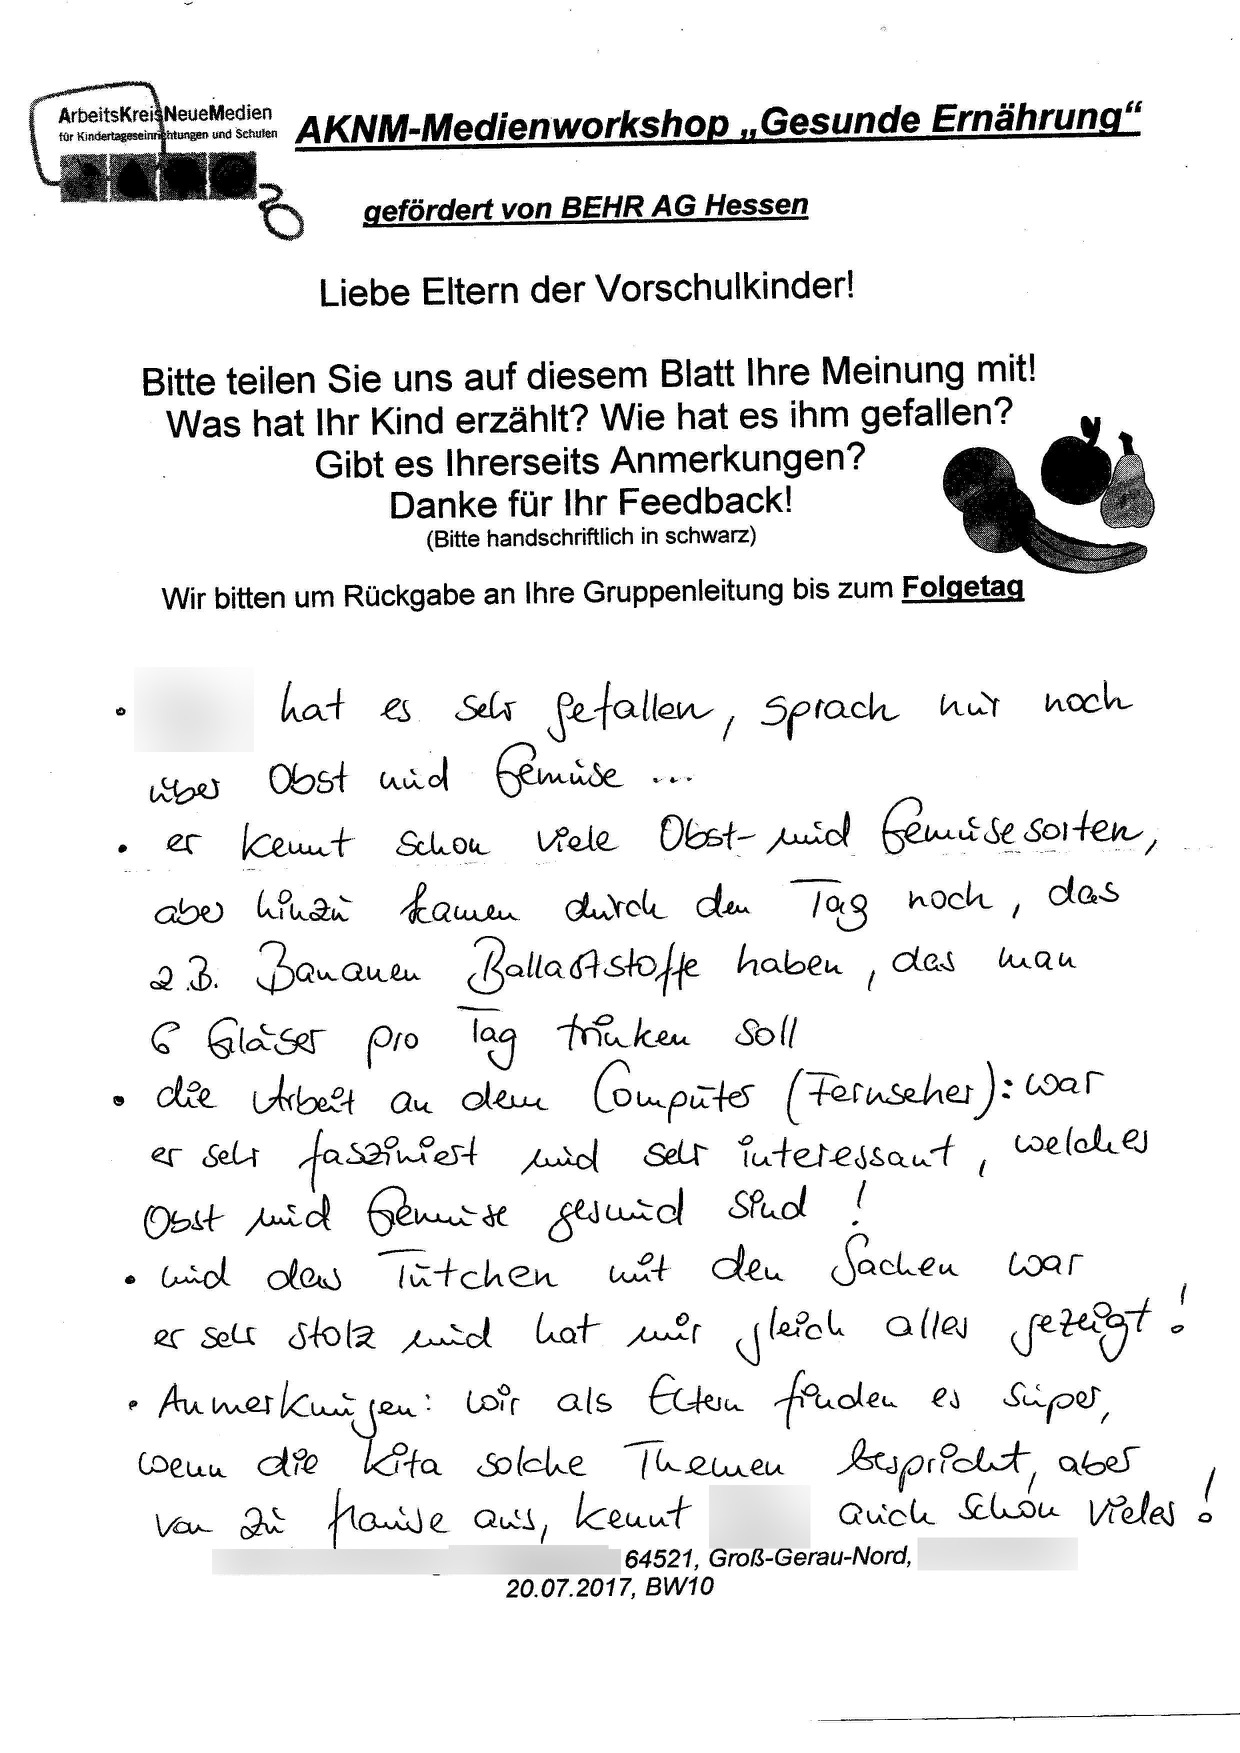 ArbeitsKreisNeueMedien
für Kindertageseinrichtungen und Schulen
AKNM-Medienworkshop „Gesunde Ernährung“
gefördert von BEHR AG Hessen
Liebe Eltern der Vorschulkinder!
Bitte teilen Sie uns auf diesem Blatt Ihre Meinung mit!
Was hat Ihr Kind erzählt? Wie hat es ihm gefallen?
Gibt es Ihrerseits Anmerkungen?
Danke für Ihr Feedback!
(Bitte handschriftlich in schwarz)
Wir bitten um Rückgabe an Ihre Gruppenleitung bis zum Folgetag
• hat es sehr gefallen, sprach nur noch
über Obst und Gemüse ...
• er kennt schon viele Obst- und Gemüsesorten,
aber hinzu kamen durch den Tag noch, das
z.B. Bananen Ballaststoffe haben, das man
6 Gläser pro Tag trinken soll
• die Arbeit an dem Computer (Fernseher): war
er sehr fasziniert und sehr interessant, welches
Obst und Gemüse gesund sind!
• und das Tütchen mit den Sachen war
er sehr stolz und hat mir gleich alles gezeigt!
• Anmerkungen: wir als Eltern finden es super,
wenn die Kita solche Themen bespricht, aber
von zu Hause aus, kennt auch schon vieles!
64521, Groß-Gerau-Nord,
20.07.2017, BW10